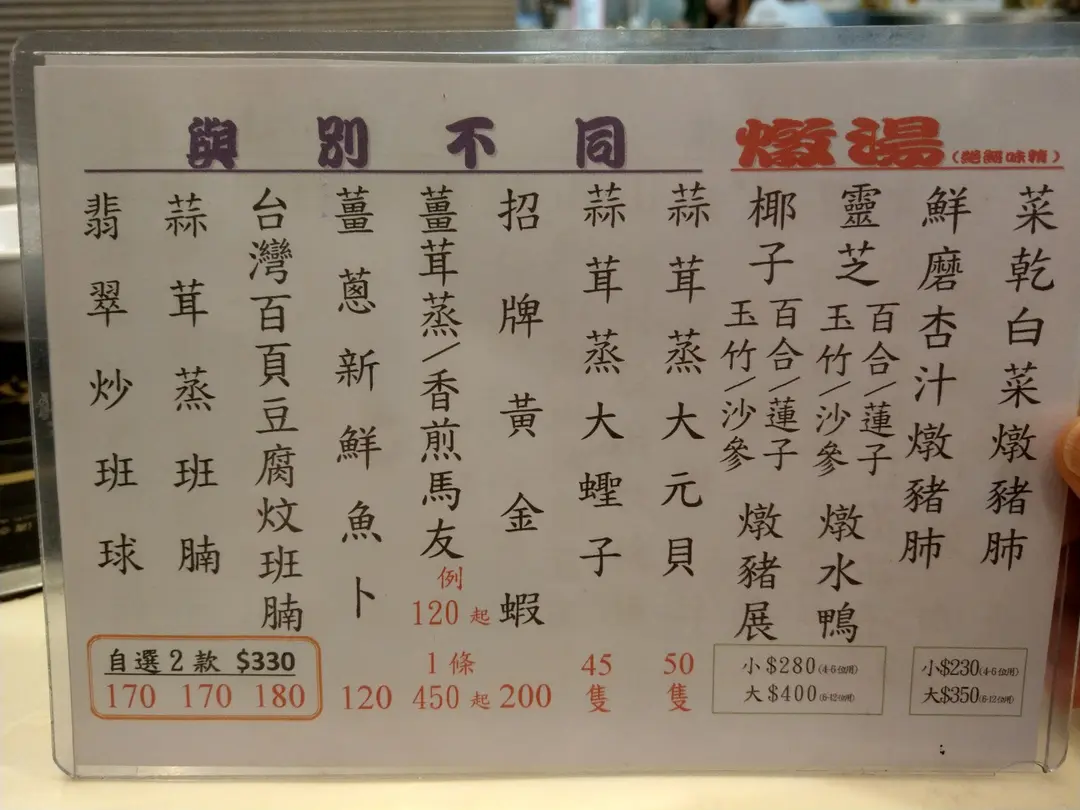 與別不同
翡翠炒班球
170
蒜茸蒸班腩
170
台灣百頁豆腐炆班腩
180
自選2款 $330
薑蔥新鮮魚卜
120
薑茸蒸/香煎馬友
例
120起
1條
450起
招牌黃金蝦
200
蒜茸蒸大蟶子
45
隻
蒜茸蒸大元貝
50
隻
燉湯(絕無味精)
椰子
百合/蓮子
玉竹/沙參
燉豬展
靈芝
百合/蓮子
玉竹/沙參
燉水鴨
小$280(4-6位用)
大$400(6-12位用)
鮮磨杏汁燉豬肺
菜乾白菜燉豬肺
小$230(4-6位用)
大$350(6-12位用)